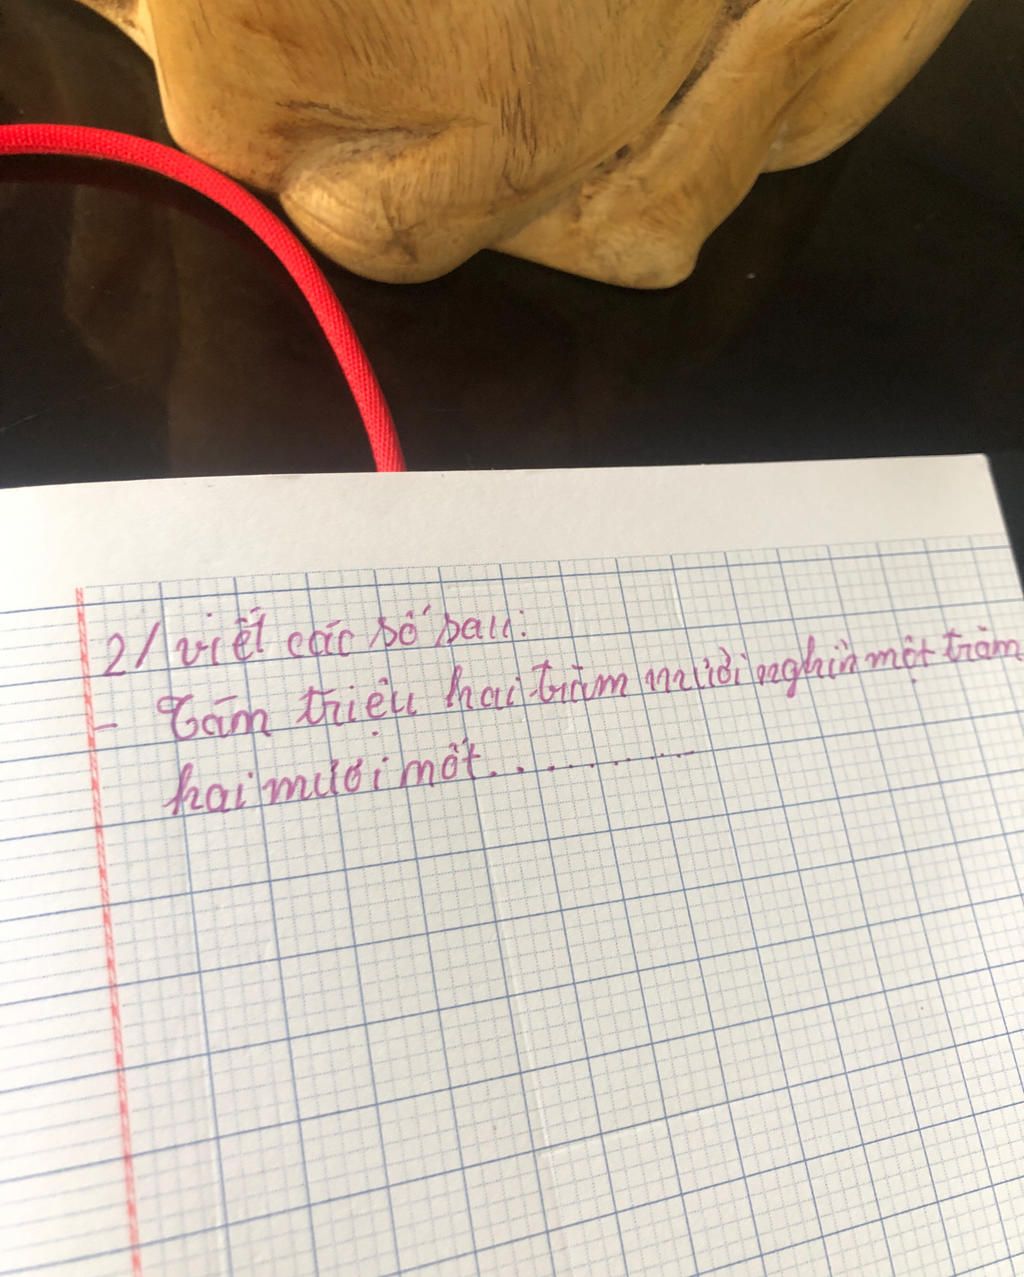 2/ viết các số sau:
- Tám triệu hai trăm mười nghìn một trăm
hai mươi mốt...........